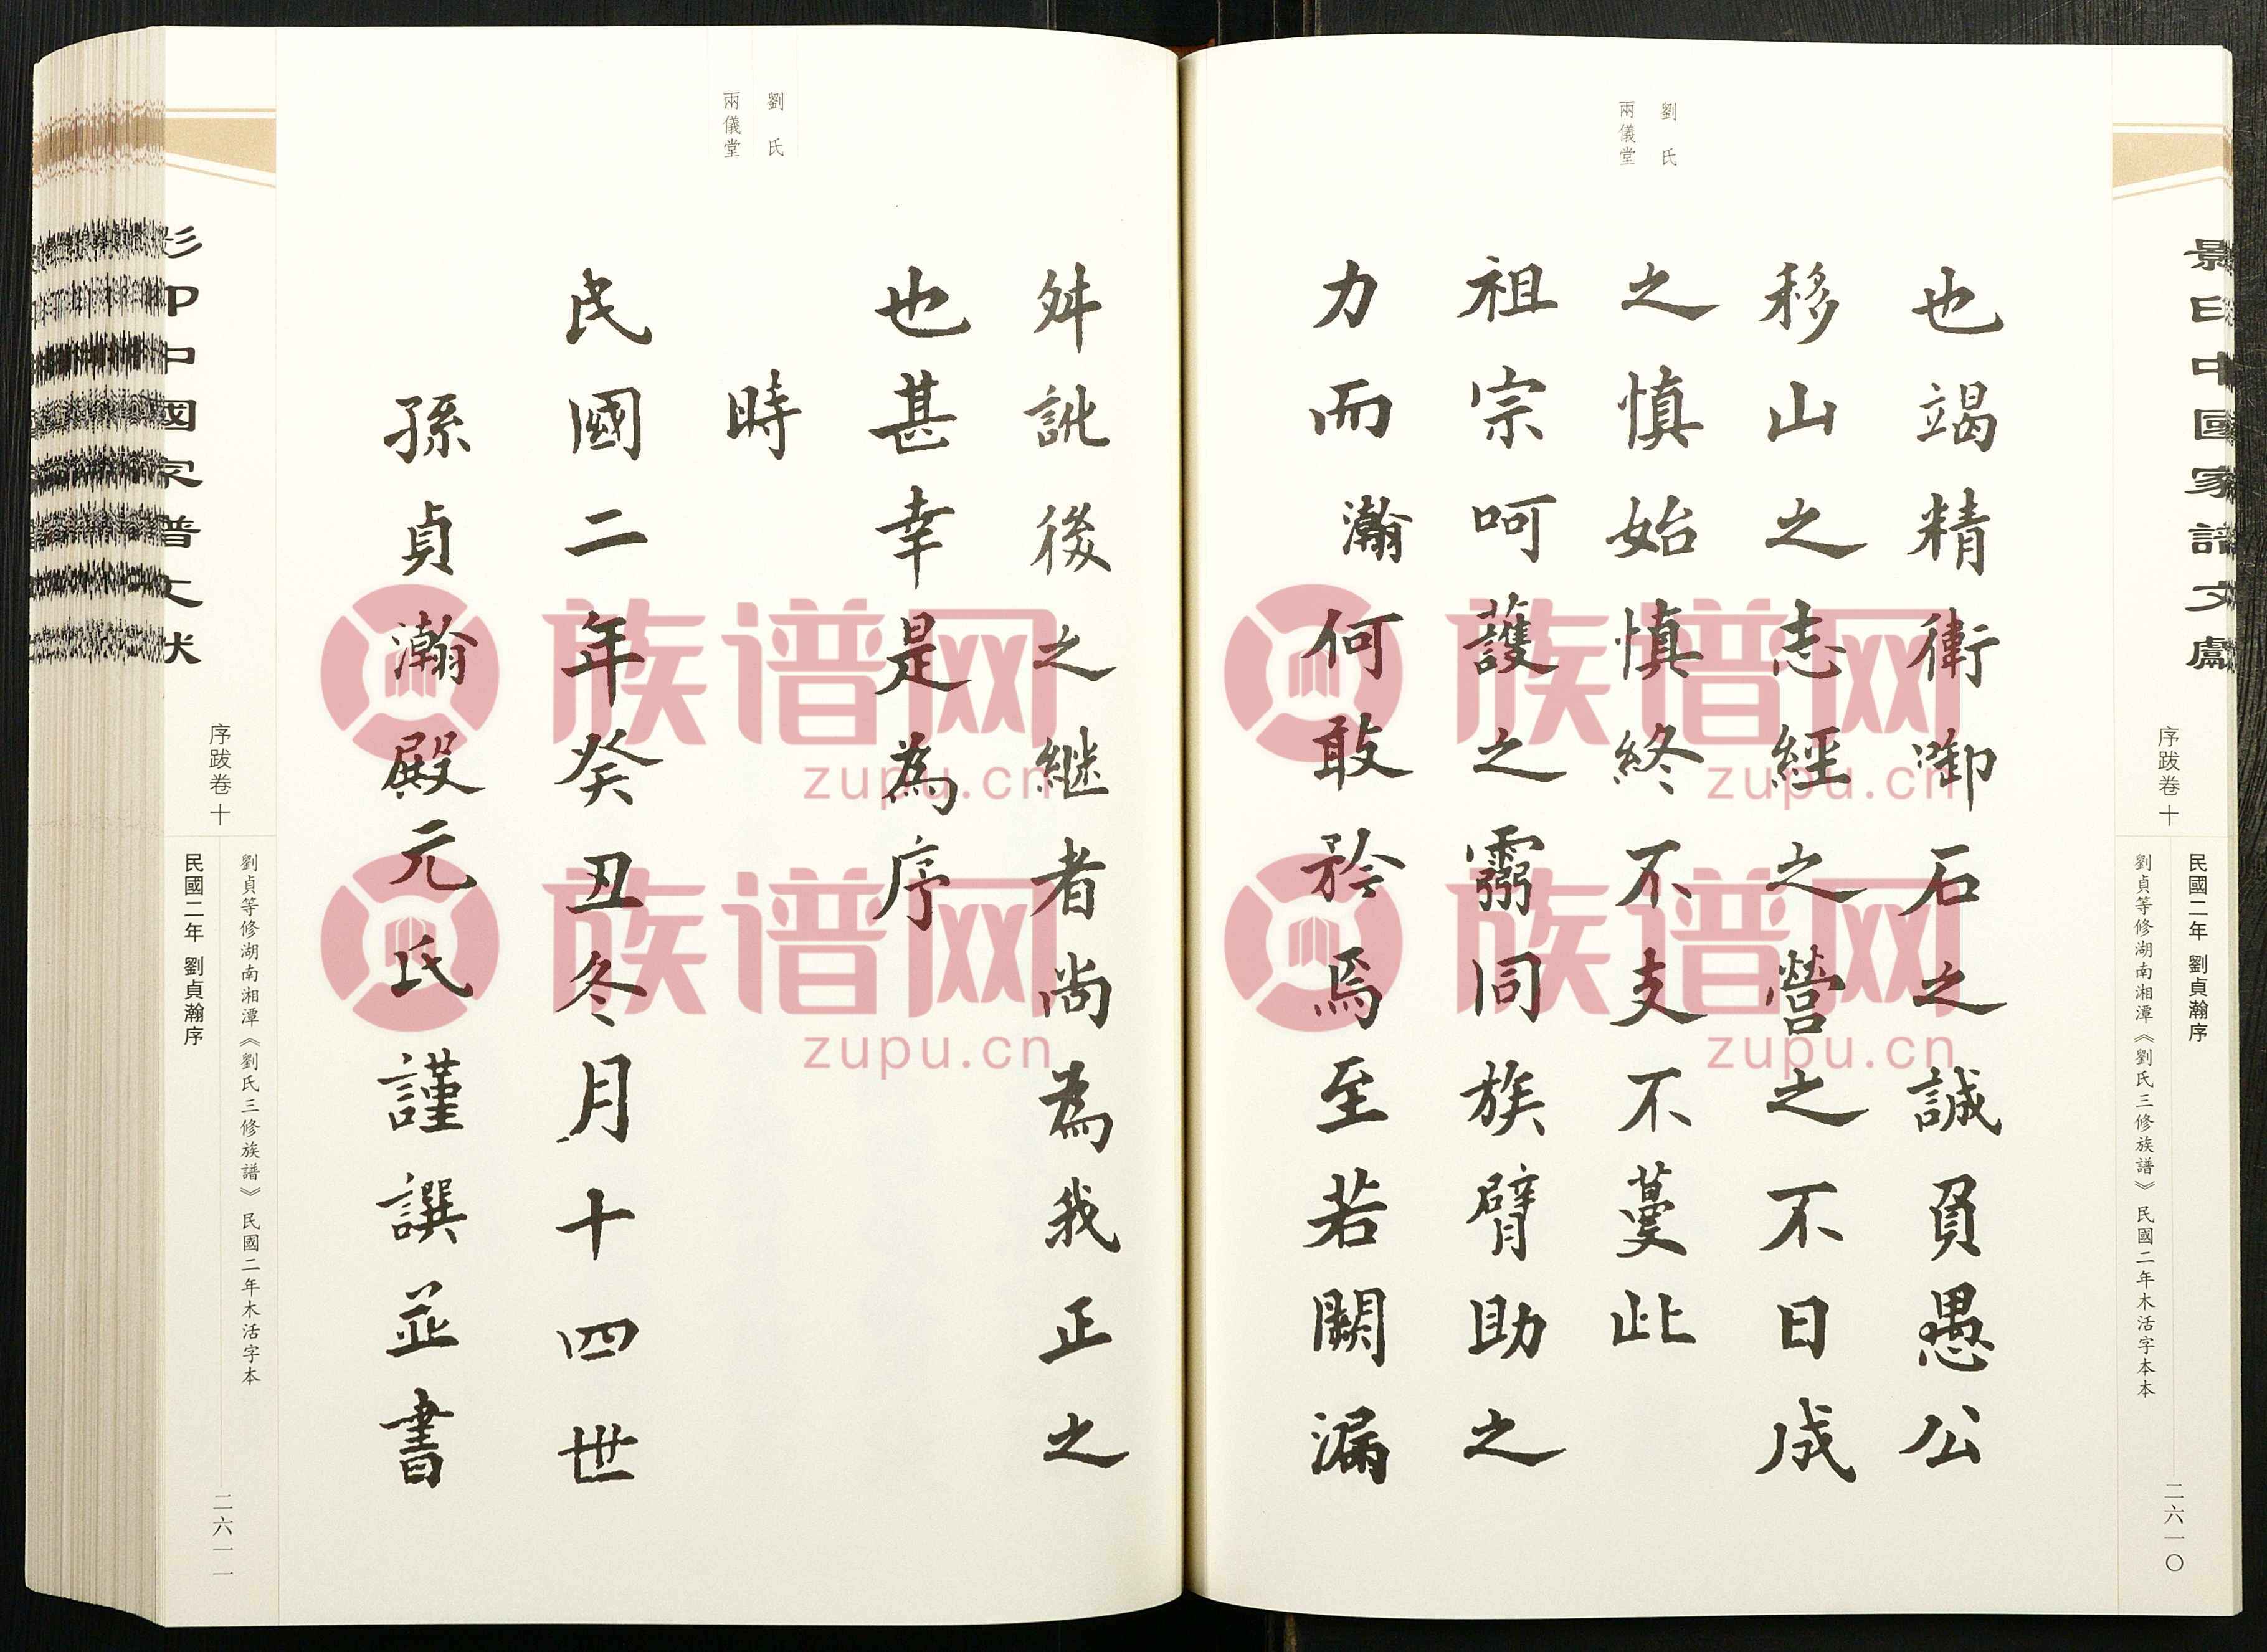 影印中國家譜文獻
序跋卷 十
民國二年 劉貞瀚序
劉貞等修湖南湘潭《劉氏三修族譜》 民國二年木活字本本
二六一〇
劉氏
兩儀堂
也竭精衛啣石之誠負愚公
移山之志經之營之不日成
之慎始慎終不支不蔓此
祖宗呵護之靈同族臂助之
力而瀚何敢矜焉至若闕漏
劉氏
兩儀堂
舛訛後之継者尚為我正之
也甚幸是為序
時
民國二年癸丑冬月十四世
孫貞瀚殿元氏謹譔並書
影印中國家譜文獻
序跋卷 十
劉貞等修湖南湘潭《劉氏三修族譜》 民國二年木活字本
民國二年 劉貞瀚序
二六一一
族谱网
zupu.cn
族谱网
zupu.cn
族谱网
zupu.cn
族谱网
zupu.cn